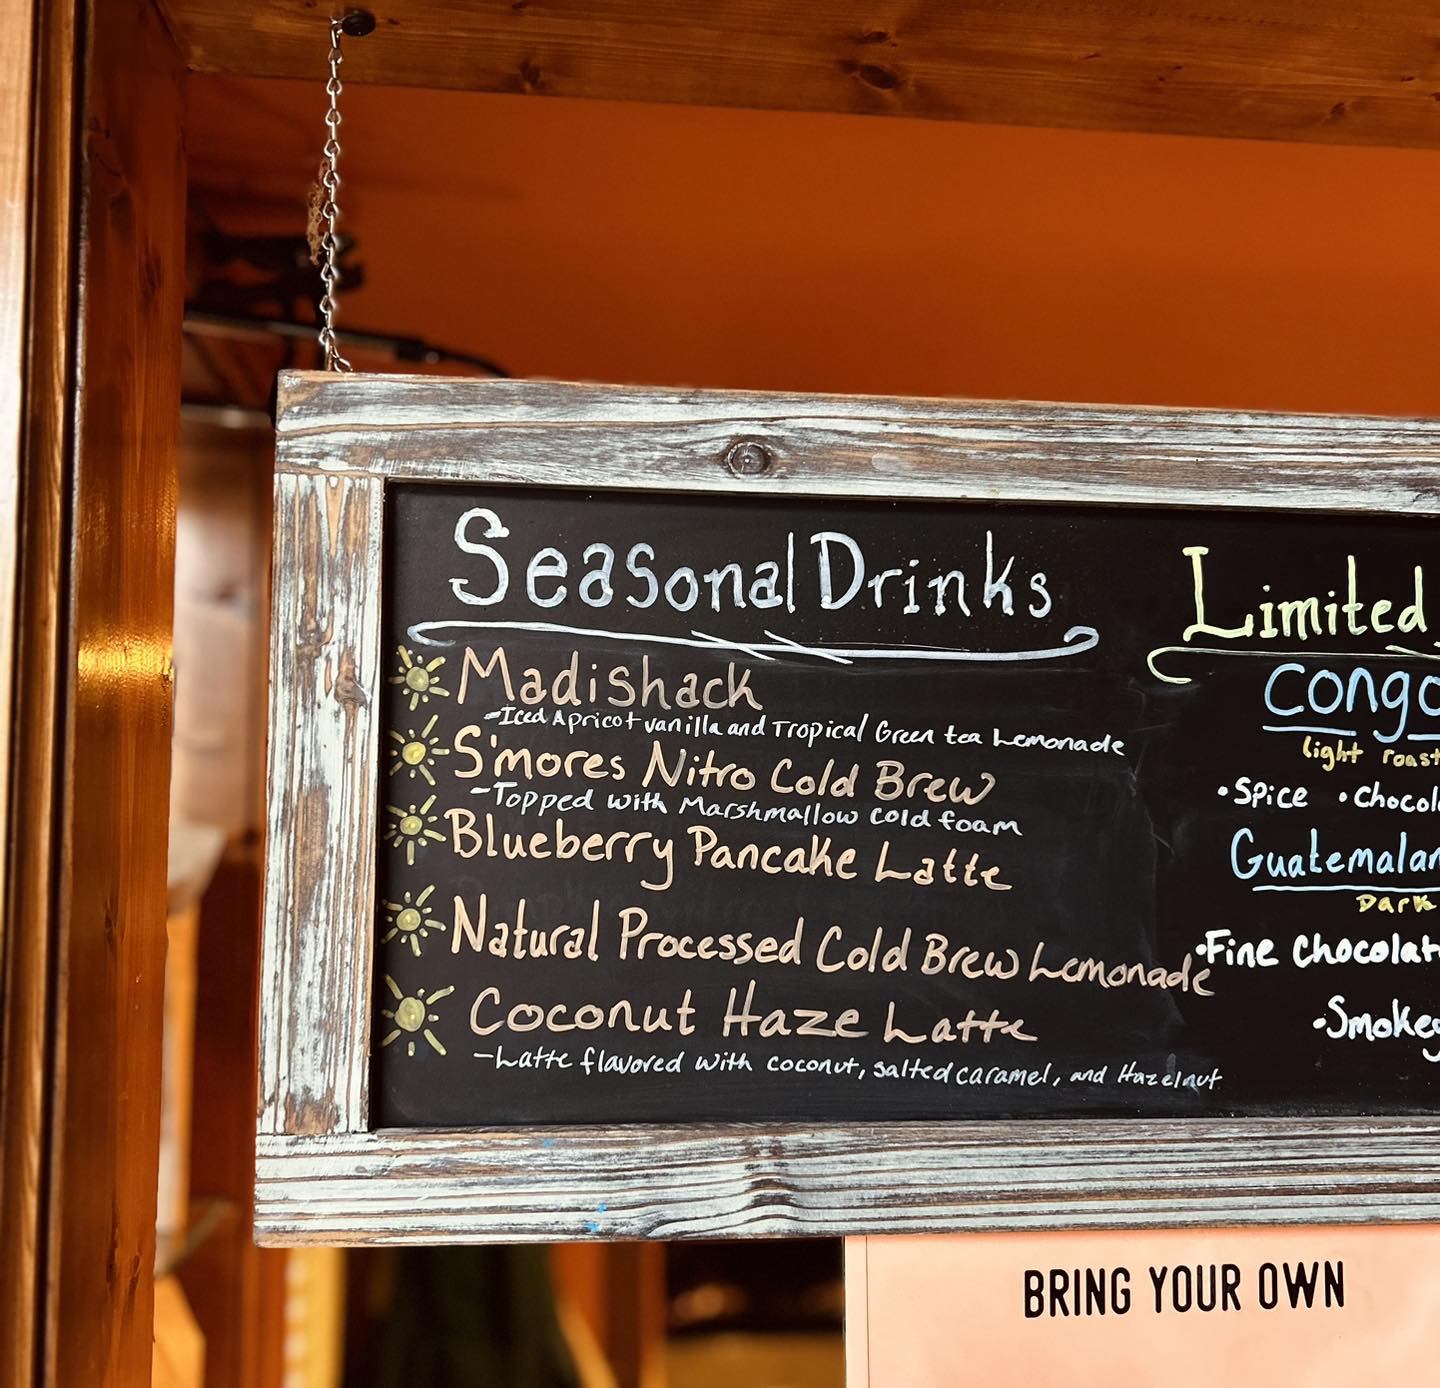 Seasonal Drinks
Madishack
-Iced Apricot vanilla and Tropical Green tea Lemonade
S'mores Nitro Cold Brew
-Topped with Marshmallow cold foam
Blueberry Pancake Latte
Natural Processed Cold Brew Lemonade
Coconut Haze Latte
-Latte flavored with coconut, salted caramel, and Hazelnut
Limited
Congo
light roast
•Spice •Chocol
Guatemalan
Dark
•Fine Chocolat
•Smokey
BRING YOUR OWN